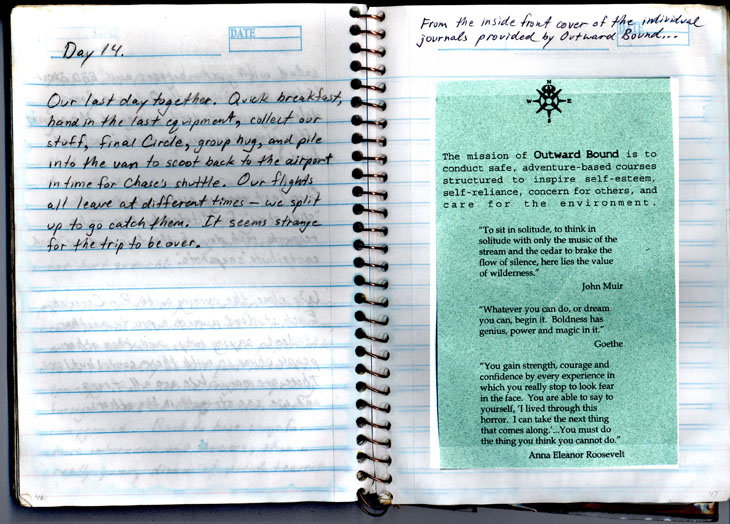 DATE
Day 14.
Our last day together. Quick breakfast,
hand in the last equipment, collect our
stuff, final Circle, group hug, and pile
into the van to scoot back to the airport
in time for Chase's shuttle. Our flights
all leave at different times — we split
up to go catch them. It seems strange
for the trip to be over.
From the inside front cover of the individual
journals provided by Outward Bound...
N
W E
S
The mission of Outward Bound is to
conduct safe, adventure-based courses
structured to inspire self-esteem,
self-reliance, concern for others, and
care for the environment.
"To sit in solitude, to think in
solitude with only the music of the
stream and the cedar to brake the
flow of silence, here lies the value
of wilderness."
John Muir
"Whatever you can do, or dream
you can, begin it. Boldness has
genius, power and magic in it."
Goethe
"You gain strength, courage and
confidence by every experience in
which you really stop to look fear
in the face. You are able to say to
yourself, 'I lived through this
horror. I can take the next thing
that comes along.'...You must do
the thing you think you cannot do."
Anna Eleanor Roosevelt